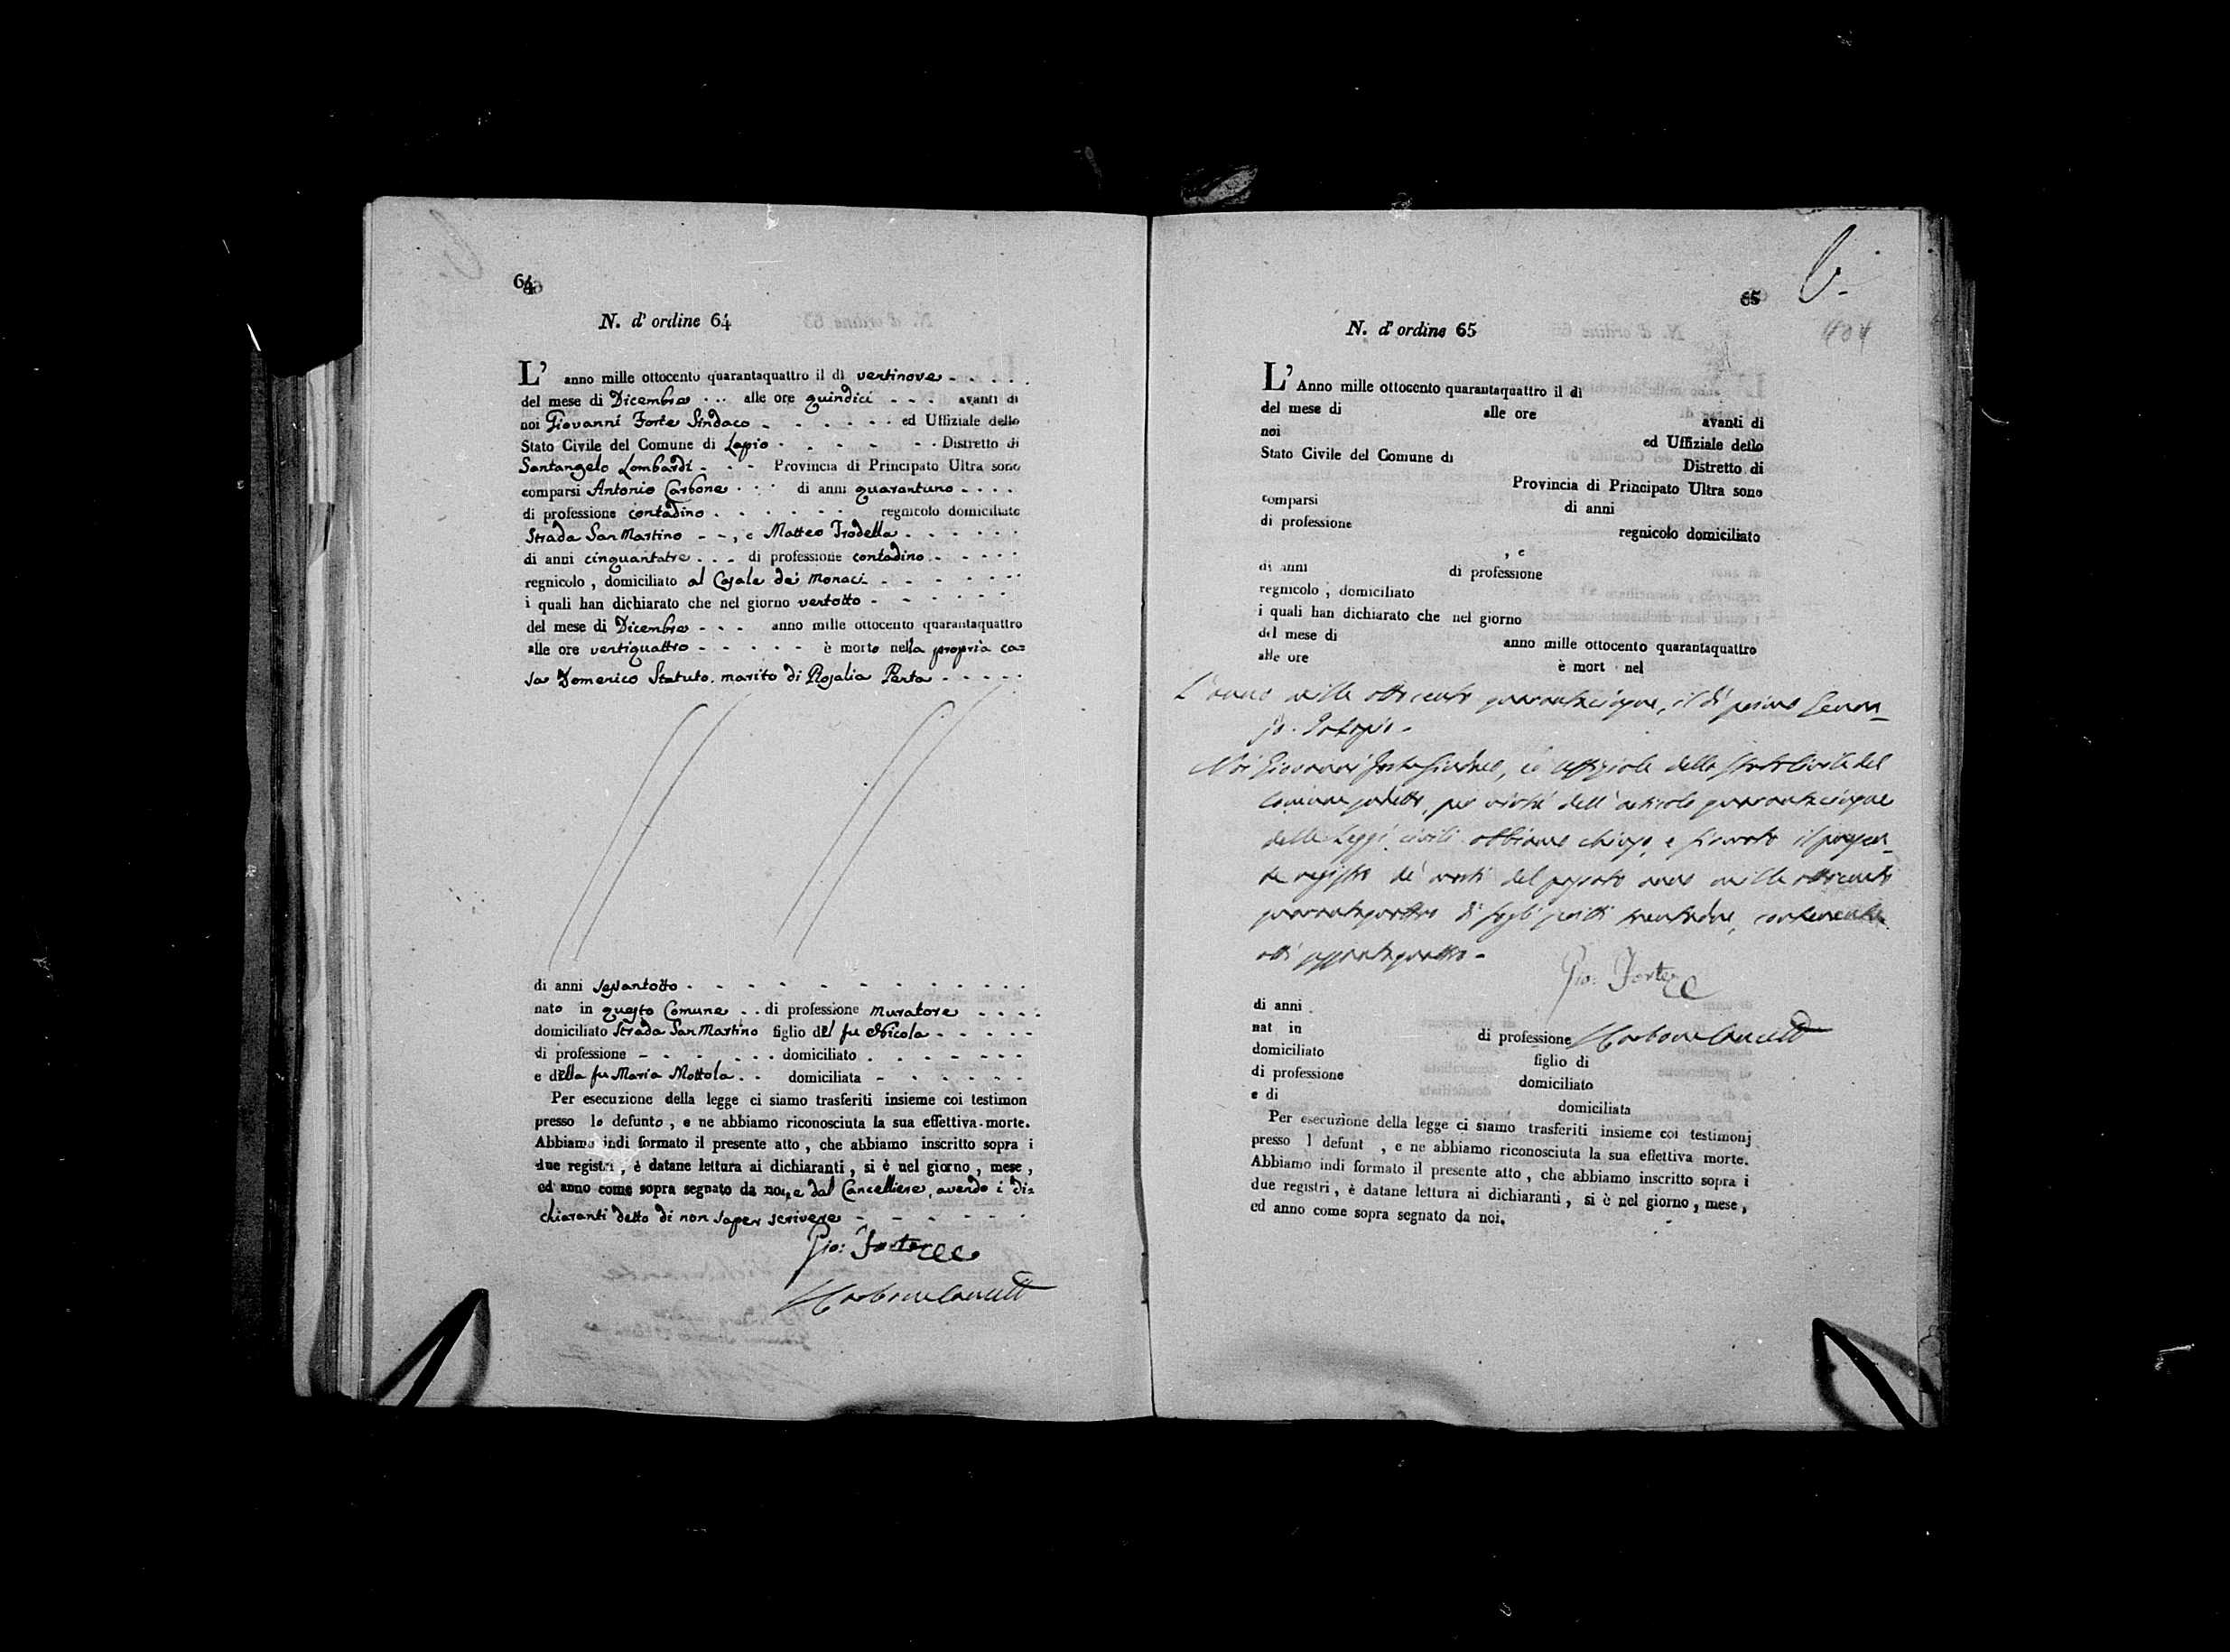 64
N. d' ordine 64
L' anno mille ottocento quarantaquattro il dì ventinove
del mese di Dicembre alle ore quindici avanti di
noi Giovanni Forte Sindaco ed Uffiziale dello
Stato Civile del Comune di Lapio Distretto di
Santangelo Lombardi Provincia di Principato Ultra sono
comparsi Antonio Carbone di anni quarantuno
di professione contadino regnicolo domiciliato
Strada San Martino , e Matteo Trodella
di anni cinquantatre di professione contadino
regnicolo , domiciliato al Casale de' Monaci
i quali han dichiarato che nel giorno ventotto
del mese di Dicembre anno mille ottocento quarantaquattro
alle ore ventiquattro è morto nella propria ca=
sa Domenico Statuto marito di Rosalia Penta
di anni sessantotto
nato in questo Comune di professione muratore
domiciliato Strada San Martino figlio del fu Nicola
di professione domiciliato
e della fu Maria Mottola domiciliata
Per esecuzione della legge ci siamo trasferiti insieme coi testimon
presso lo defunto , e ne abbiamo riconosciuta la sua effettiva morte.
Abbiamo indi formato il presente atto , che abbiamo inscritto sopra i
due registri , è datane lettura ai dichiaranti , si è nel giorno , mese ,
ed anno come sopra segnato da noi, e dal Cancelliere, avendo i di=
chiaranti detto di non saper scrivere
Gio: Forte
Carbone Cancell
65
N. d' ordine 65
L' Anno mille ottocento quarantaquattro il dì
del mese di alle ore avanti di
noi ed Uffiziale dello
Stato Civile del Comune di Distretto di
Provincia di Principato Ultra sono
comparsi di anni
di professione regnicolo domiciliato
, e
di anni di professione
regnicolo , domiciliato
i quali han dichiarato che nel giorno
del mese di anno mille ottocento quarantaquattro
alle ore è mort nel
L'anno mille ottocento quarantacinque, il dì primo Genna=
jo. In Lapio.
Noi Giovanni Forte Sindaco, ed Uffiziale dello Stato Civile del
Comune sudetto, per virtù dell'articolo quarantacinque
delle Leggi civili abbiamo chiuso, e firmato il presen=
te registro de' morti del passato anno mille ottocento
quarantaquattro di fogli scritti trentadue, contenente
atti sessantaquattro.
Gio: Forte
di anni
nat in di professione Carbone Cancell
domiciliato figlio di
di professione domiciliato
e di domiciliata
Per esecuzione della legge ci siamo trasferiti insieme coi testimonj
presso l defunt , e ne abbiamo riconosciuta la sua effettiva morte.
Abbiamo indi formato il presente atto , che abbiamo inscritto sopra i
due registri , è datane lettura ai dichiaranti , si è nel giorno , mese ,
ed anno come sopra segnato da noi.